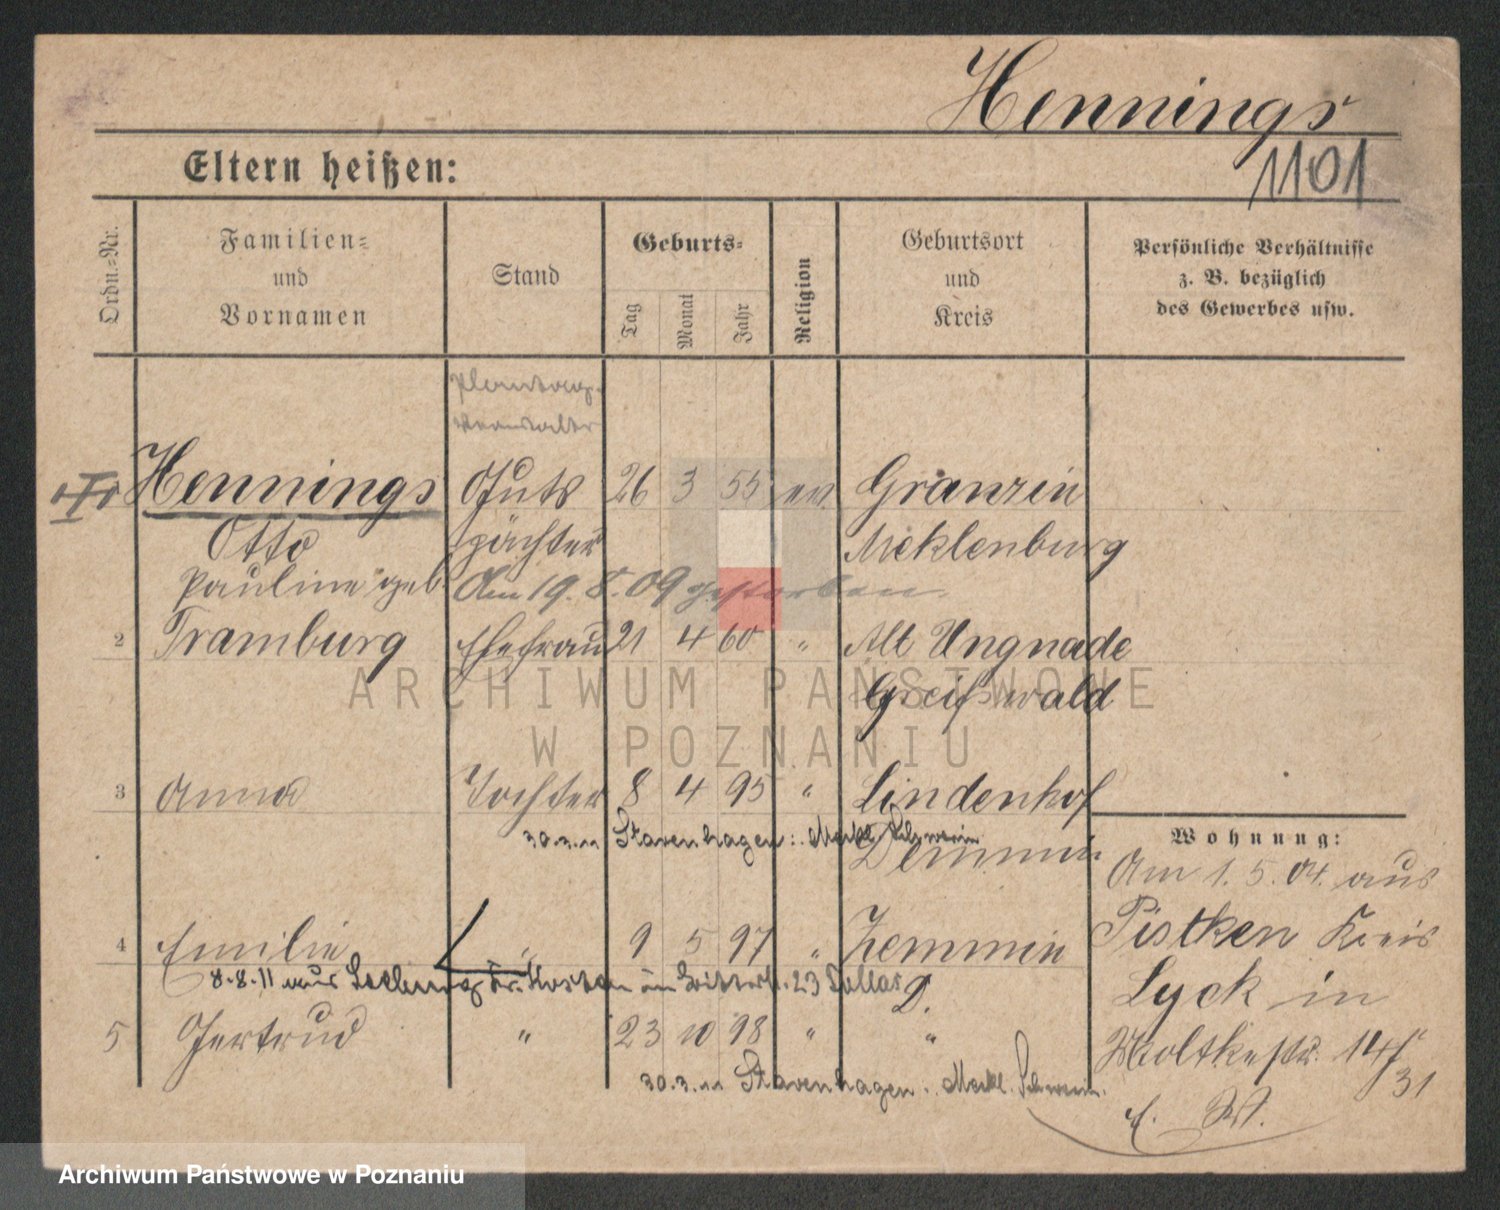 Hennings
1101
Eltern heißen:
Ordn.-Nr.
Familien-
und
Vornamen
Stand
Geburts-
Tag
Monat
Jahr
Religion
Geburtsort
und
Kreis
Persönliche Verhältnisse
z. B. bezüglich
des Gewerbes usw.
Hennings Guts 26 3 55 ev. Granzin
Otto pächter Meklenburg
Pauline geb. Am 19. 8. 09 gestorben
2 Tramburg Ehefrau 21 4 60 " Alt Ungnade
Greifswald
3 Anna Tochter 8 4 95 " Lindenhof
30.3.11 Stavenhagen: Meckl. Schwerin
Demmin
4 Emilie " 9 5 97 " Zemmin
8.8.11 aus Kr. Kosten in 23
D.
5 Gertrud " 23 10 98 " "
30.3.11 Stavenhagen. Meckl. Schwerin.
Wohnung:
Am 1. 5. 04. aus
Pistken Kreis
Lyck in
Moltkestr. 14
31
ARCHIWUM PAŃSTWOWE
W POZNANIU
Archiwum Państwowe w Poznaniu